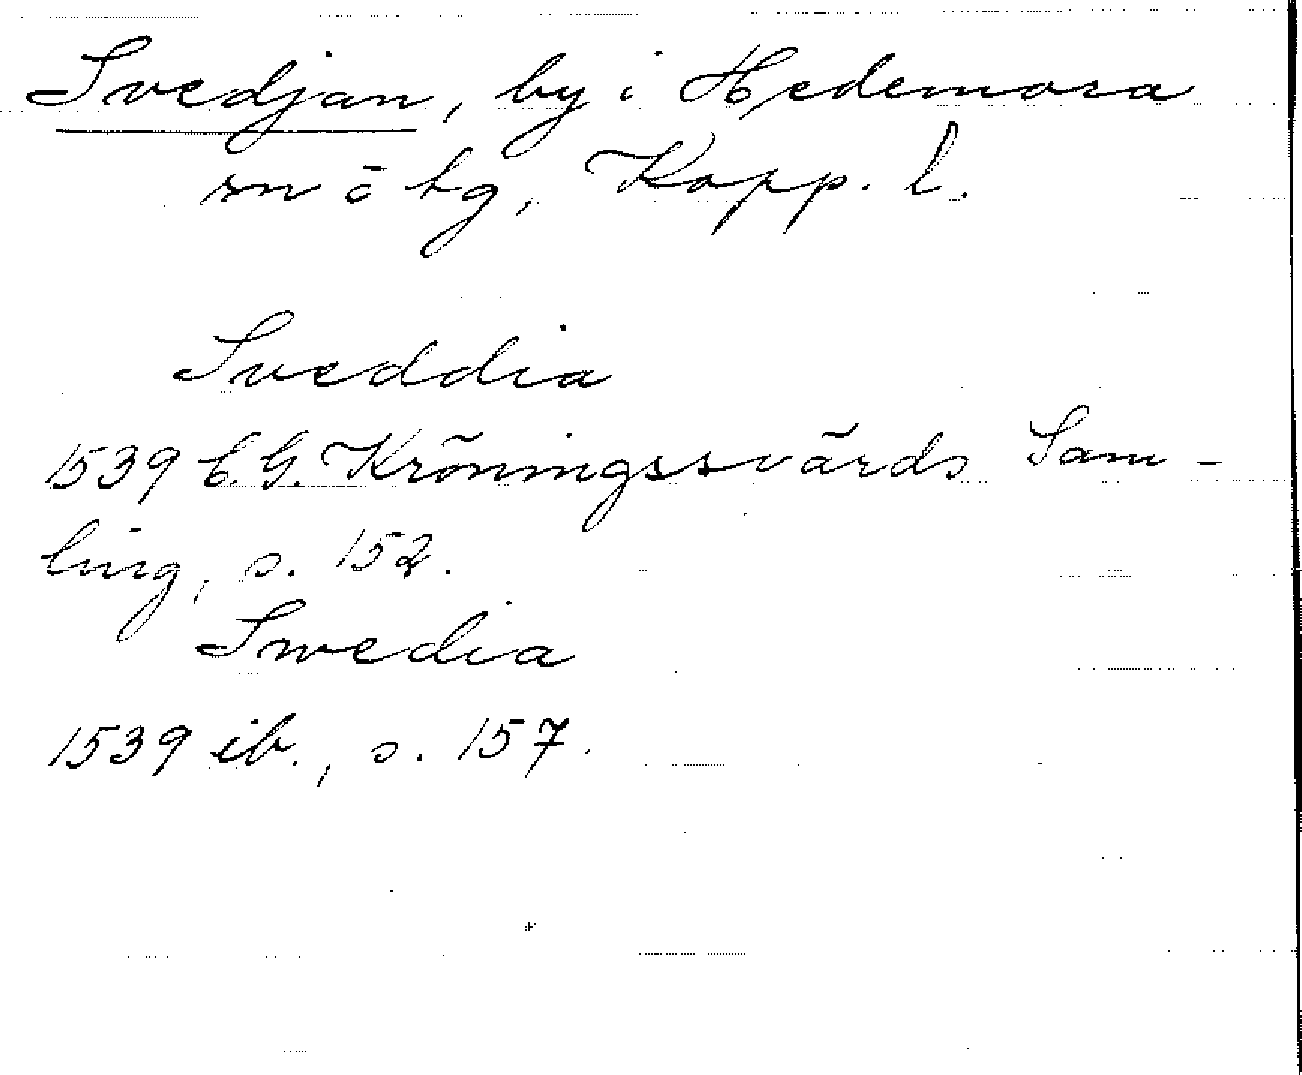 Svedjan, by i Hedemora
sn o tg, Kopp. l.
Sveddia
1539 C.G. Kröningssvärds Sam-
ling, s. 152.
Swedia
1539 ib., s. 157.